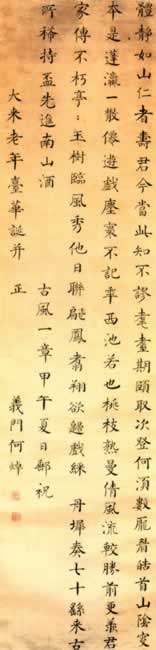 體靜如山仁者壽君今當此知不謬耄耋期頤取次登何須數龐眉皓首山陰叟
本是蓬瀛一散僊遊戲塵寰不記年西池若也桃枝熟曼倩風流較勝前更羨君
家傳不朽亭:玉樹臨風秀他日聯翩鳳翥翔欲戲綵丹墀奏七十繇來古
所稀持盃先進南山酒 古風一章甲午夏日鄙祝
大來老年臺華誕并 正
義門何焯